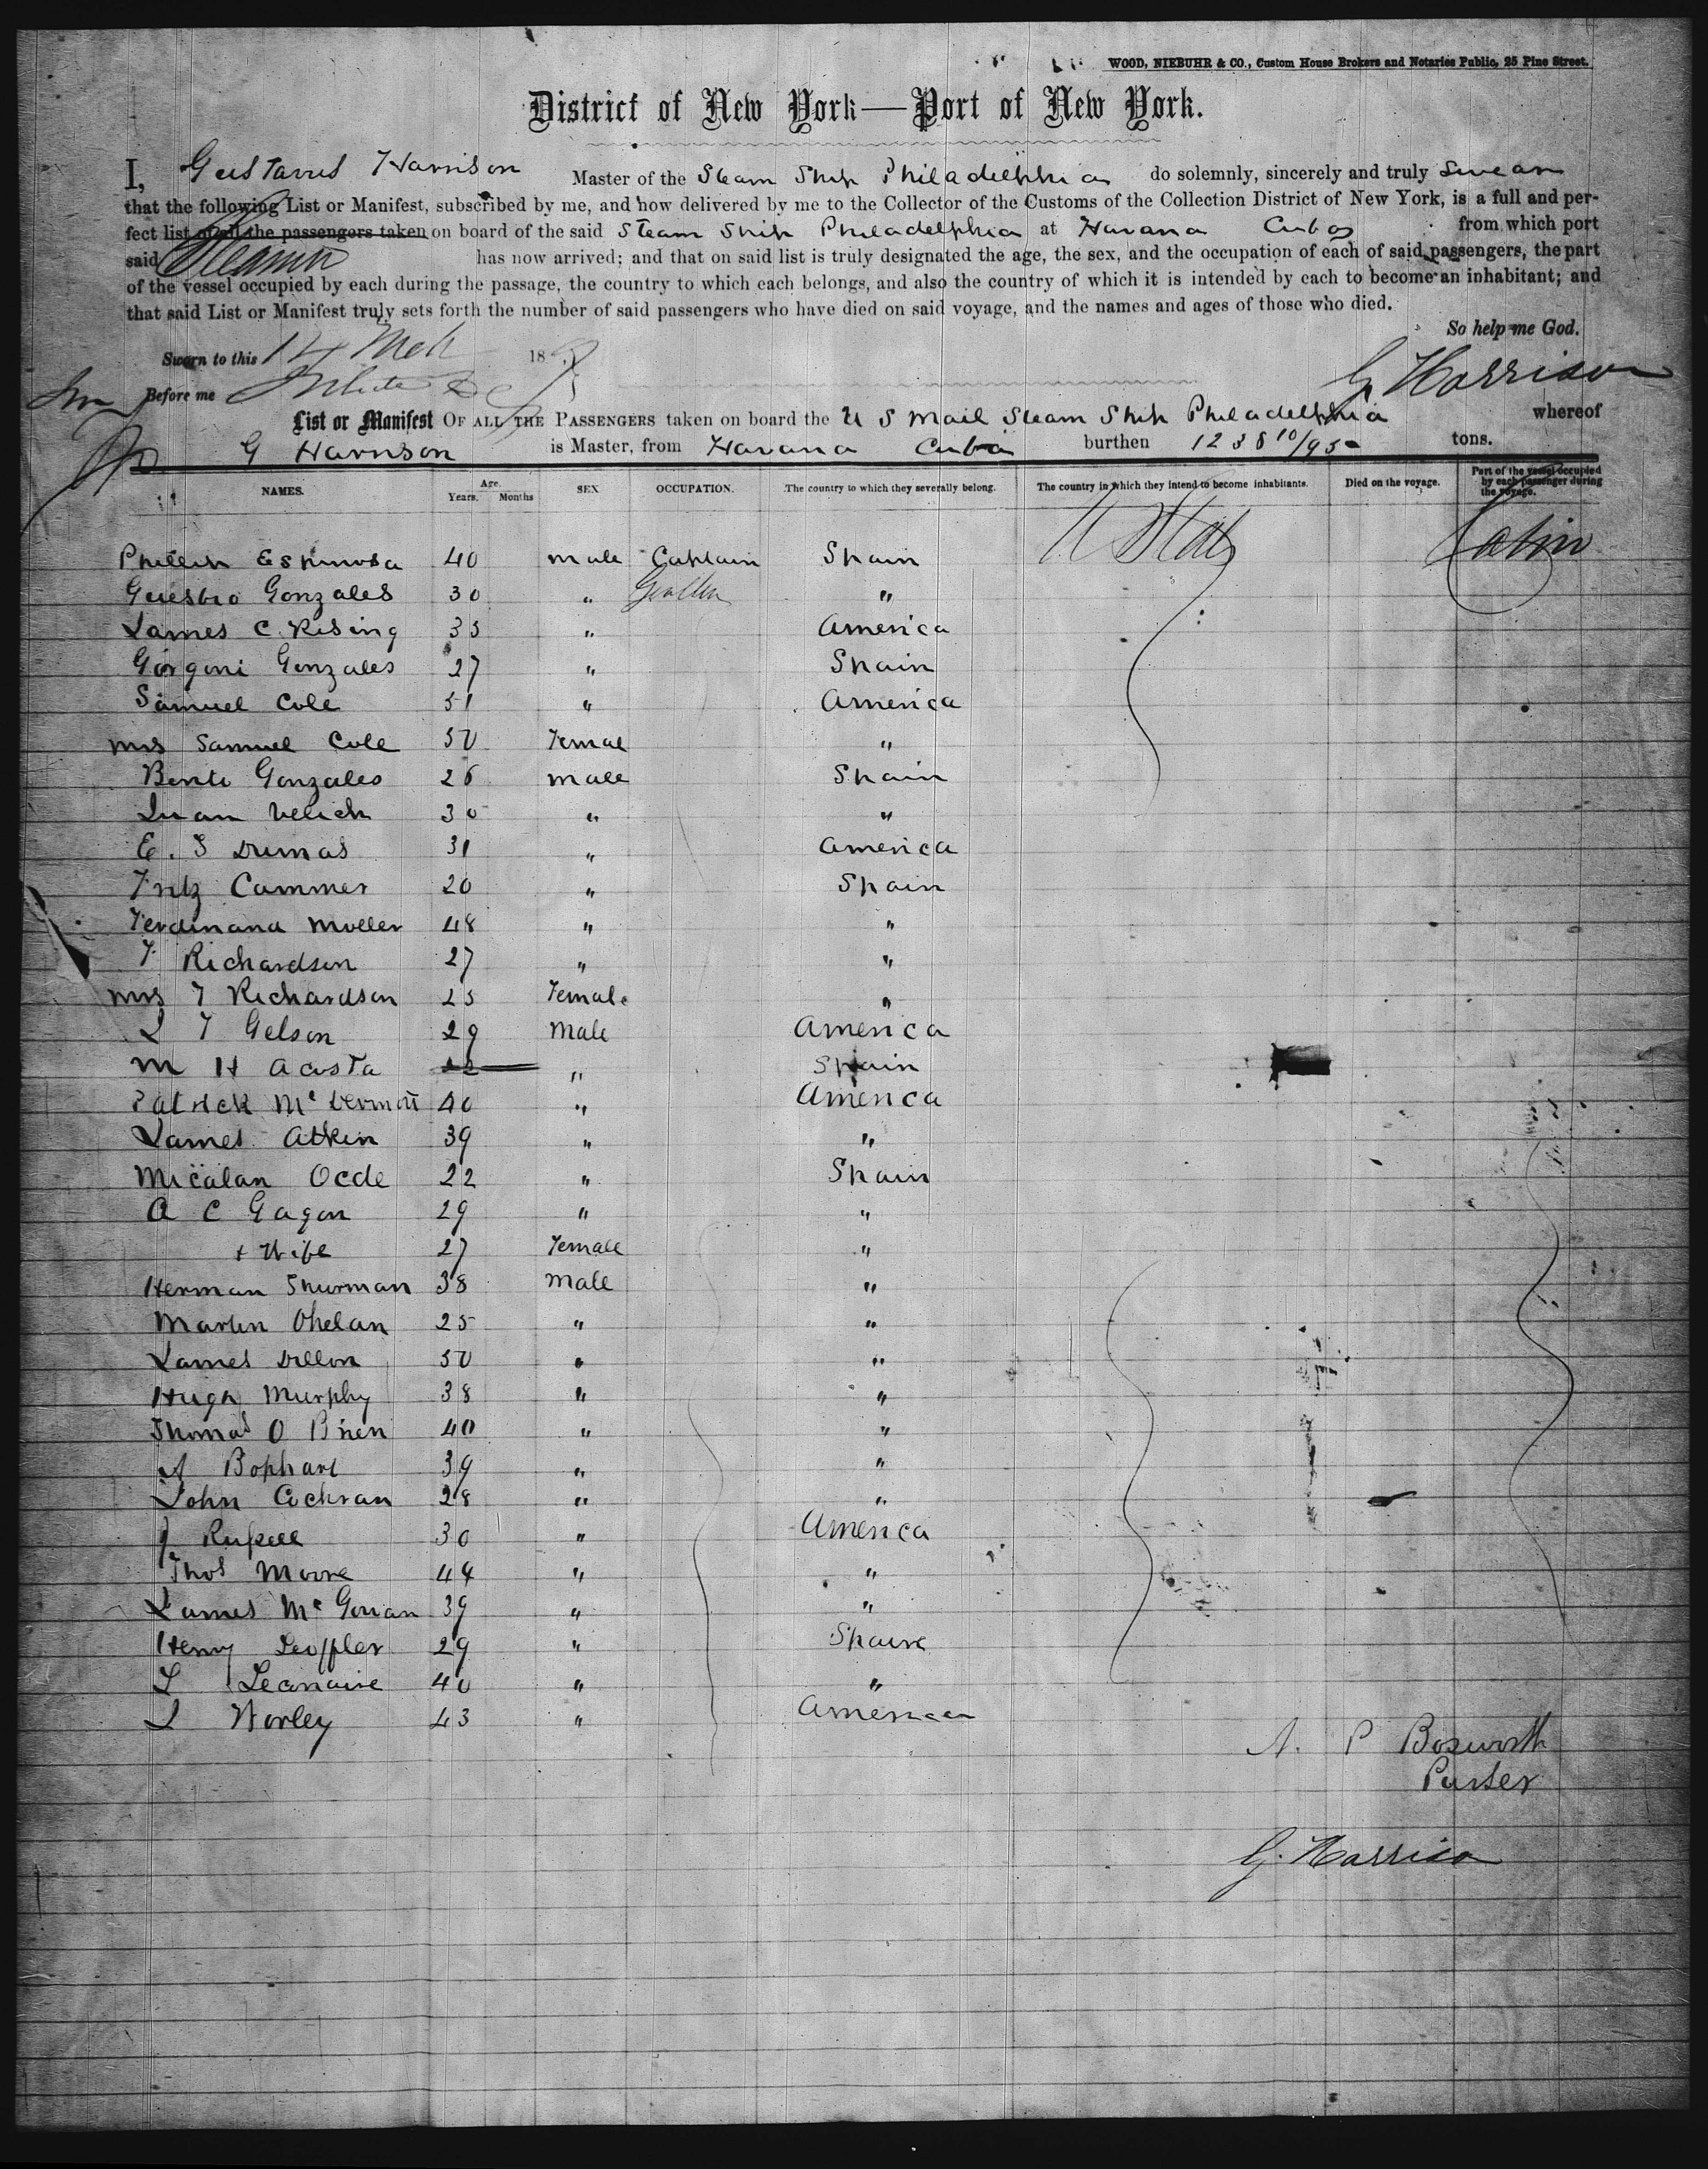 WOOD, NIEBUHR & CO., Custom House Brokers and Notaries Public, 25 Pine Street.
District of New York—Port of New York.
I, Gustavus Harrison Master of the Steam Ship Philadelphia do solemnly, sincerely and truly Swear
that the following List or Manifest, subscribed by me, and now delivered by me to the Collector of the Customs of the Collection District of New York, is a full and per-
fect list of all the passengers taken on board of the said Steam Ship Philadelphia at Havana Cuba from which port
said Steamer has now arrived; and that on said list is truly designated the age, the sex, and the occupation of each of said passengers, the part
of the vessel occupied by each during the passage, the country to which each belongs, and also the country of which it is intended by each to become an inhabitant; and
that said List or Manifest truly sets forth the number of said passengers who have died on said voyage, and the names and ages of those who died.
So help me God.
Sworn to this 14 Mch 18
Before me G Harrison
List or Manifest OF ALL THE PASSENGERS taken on board the U S Mail Steam Ship Philadelphia whereof
G Harrison is Master, from Havana Cuba burthen 1238 10/95 tons.
NAMES. Age. Years. Months SEX OCCUPATION. The country to which they severally belong. The country in which they intend to become inhabitants. Died on the voyage. Part of the vessel occupied by each passenger during the voyage.
Phillip Espinosa 40 Male Captain Spain U States Cabin
Gonzales 30 " "
James C. Rising 35 " America
Gorgoni Gonzales 27 " Spain
Samuel Cole 51 " America
Mrs Samuel Cole 50 Female "
Bento Gonzales 26 Male Spain
Juan Velich 30 " "
E. S Dumas 31 " America
Fritz Cammer 20 " Spain
Ferdinand Moller 48 " "
F Richardson 27 " "
Mrs F Richardson 25 Female "
J F Gelson 29 Male America
M H Acosta " Spain
Patrick McDermott 40 " America
James Atkin 39 " "
Micalan Ocde 22 " Spain
A C Gagon 29 " "
+ Wife 27 Female "
Herman Shurman 38 Male "
Martin Ohelan 25 " "
James Dillon 50 " "
Hugh Murphy 38 " "
Thomas O Brien 40 " "
A Bophart 39 " "
John Cochran 28 " "
J Russell 30 " America
Thos Moore 44 " "
James McGowan 39 " "
Henry Leoffler 29 " Spain
L Leanaire 40 " "
J Worley 43 " American
N. P Bosworth
Purser
G. Harrison